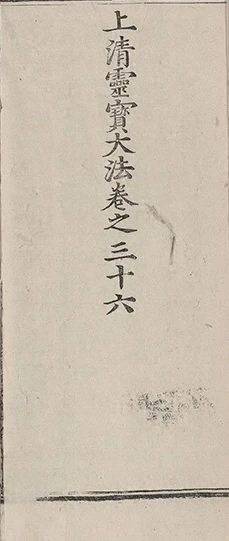 上清靈寶大法卷之三十六